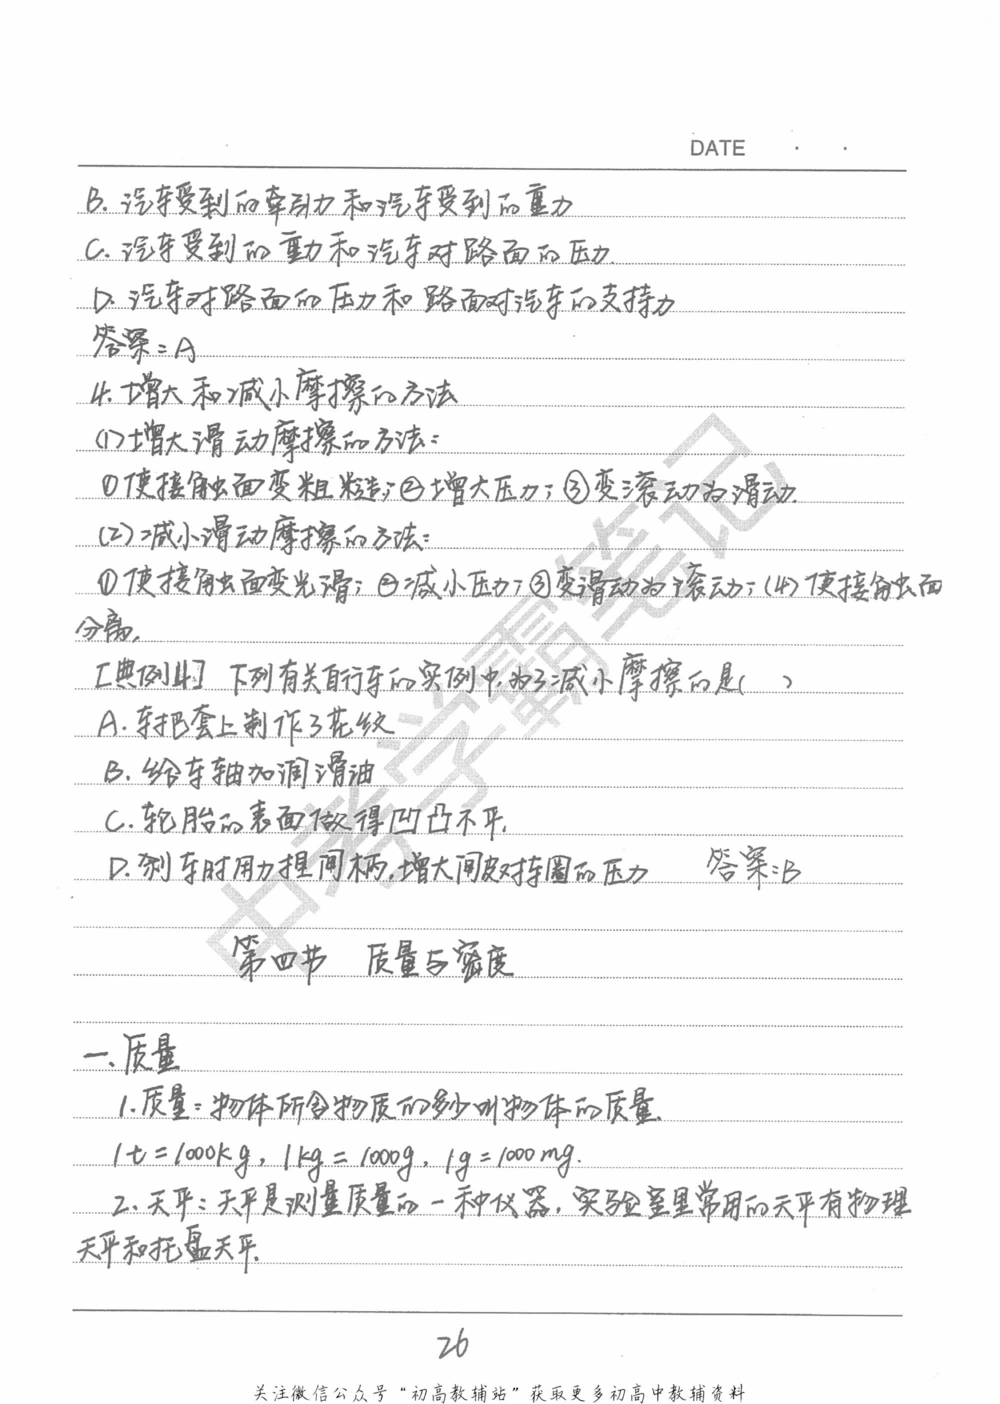 DATE · ·
B. 汽车受到的牵引力和汽车受到的重力
C. 汽车受到的重力和汽车对路面的压力.
D. 汽车对路面的压力和路面对汽车的支持力
答案:A
4.增大和减小摩擦的方法
(1)增大滑动摩擦的方法:
①使接触面变粗糙;②增大压力;③变滚动为滑动.
(2)减小滑动摩擦的方法:
①使接触面变光滑;②减小压力;③变滑动为滚动;(4)使接触面
分离.
[典例4] 下列有关自行车的实例中,为了减小摩擦的是( )
A.车把套上制作了花纹
B.给车轴加润滑油
C.轮胎的表面做得凹凸不平.
D.刹车时用力捏闸柄,增大闸皮对车圈的压力 答案:B
第四节 质量与密度
一、质量
1.质量:物体所含物质的多少叫物体的质量.
1t=1000kg, 1kg=1000g, 1g=1000mg.
2.天平:天平是测量质量的一种仪器,实验室里常用的天平有物理
天平和托盘天平.
26
关注微信公众号“初高教辅站”获取更多初高中教辅资料
中考学霸笔记